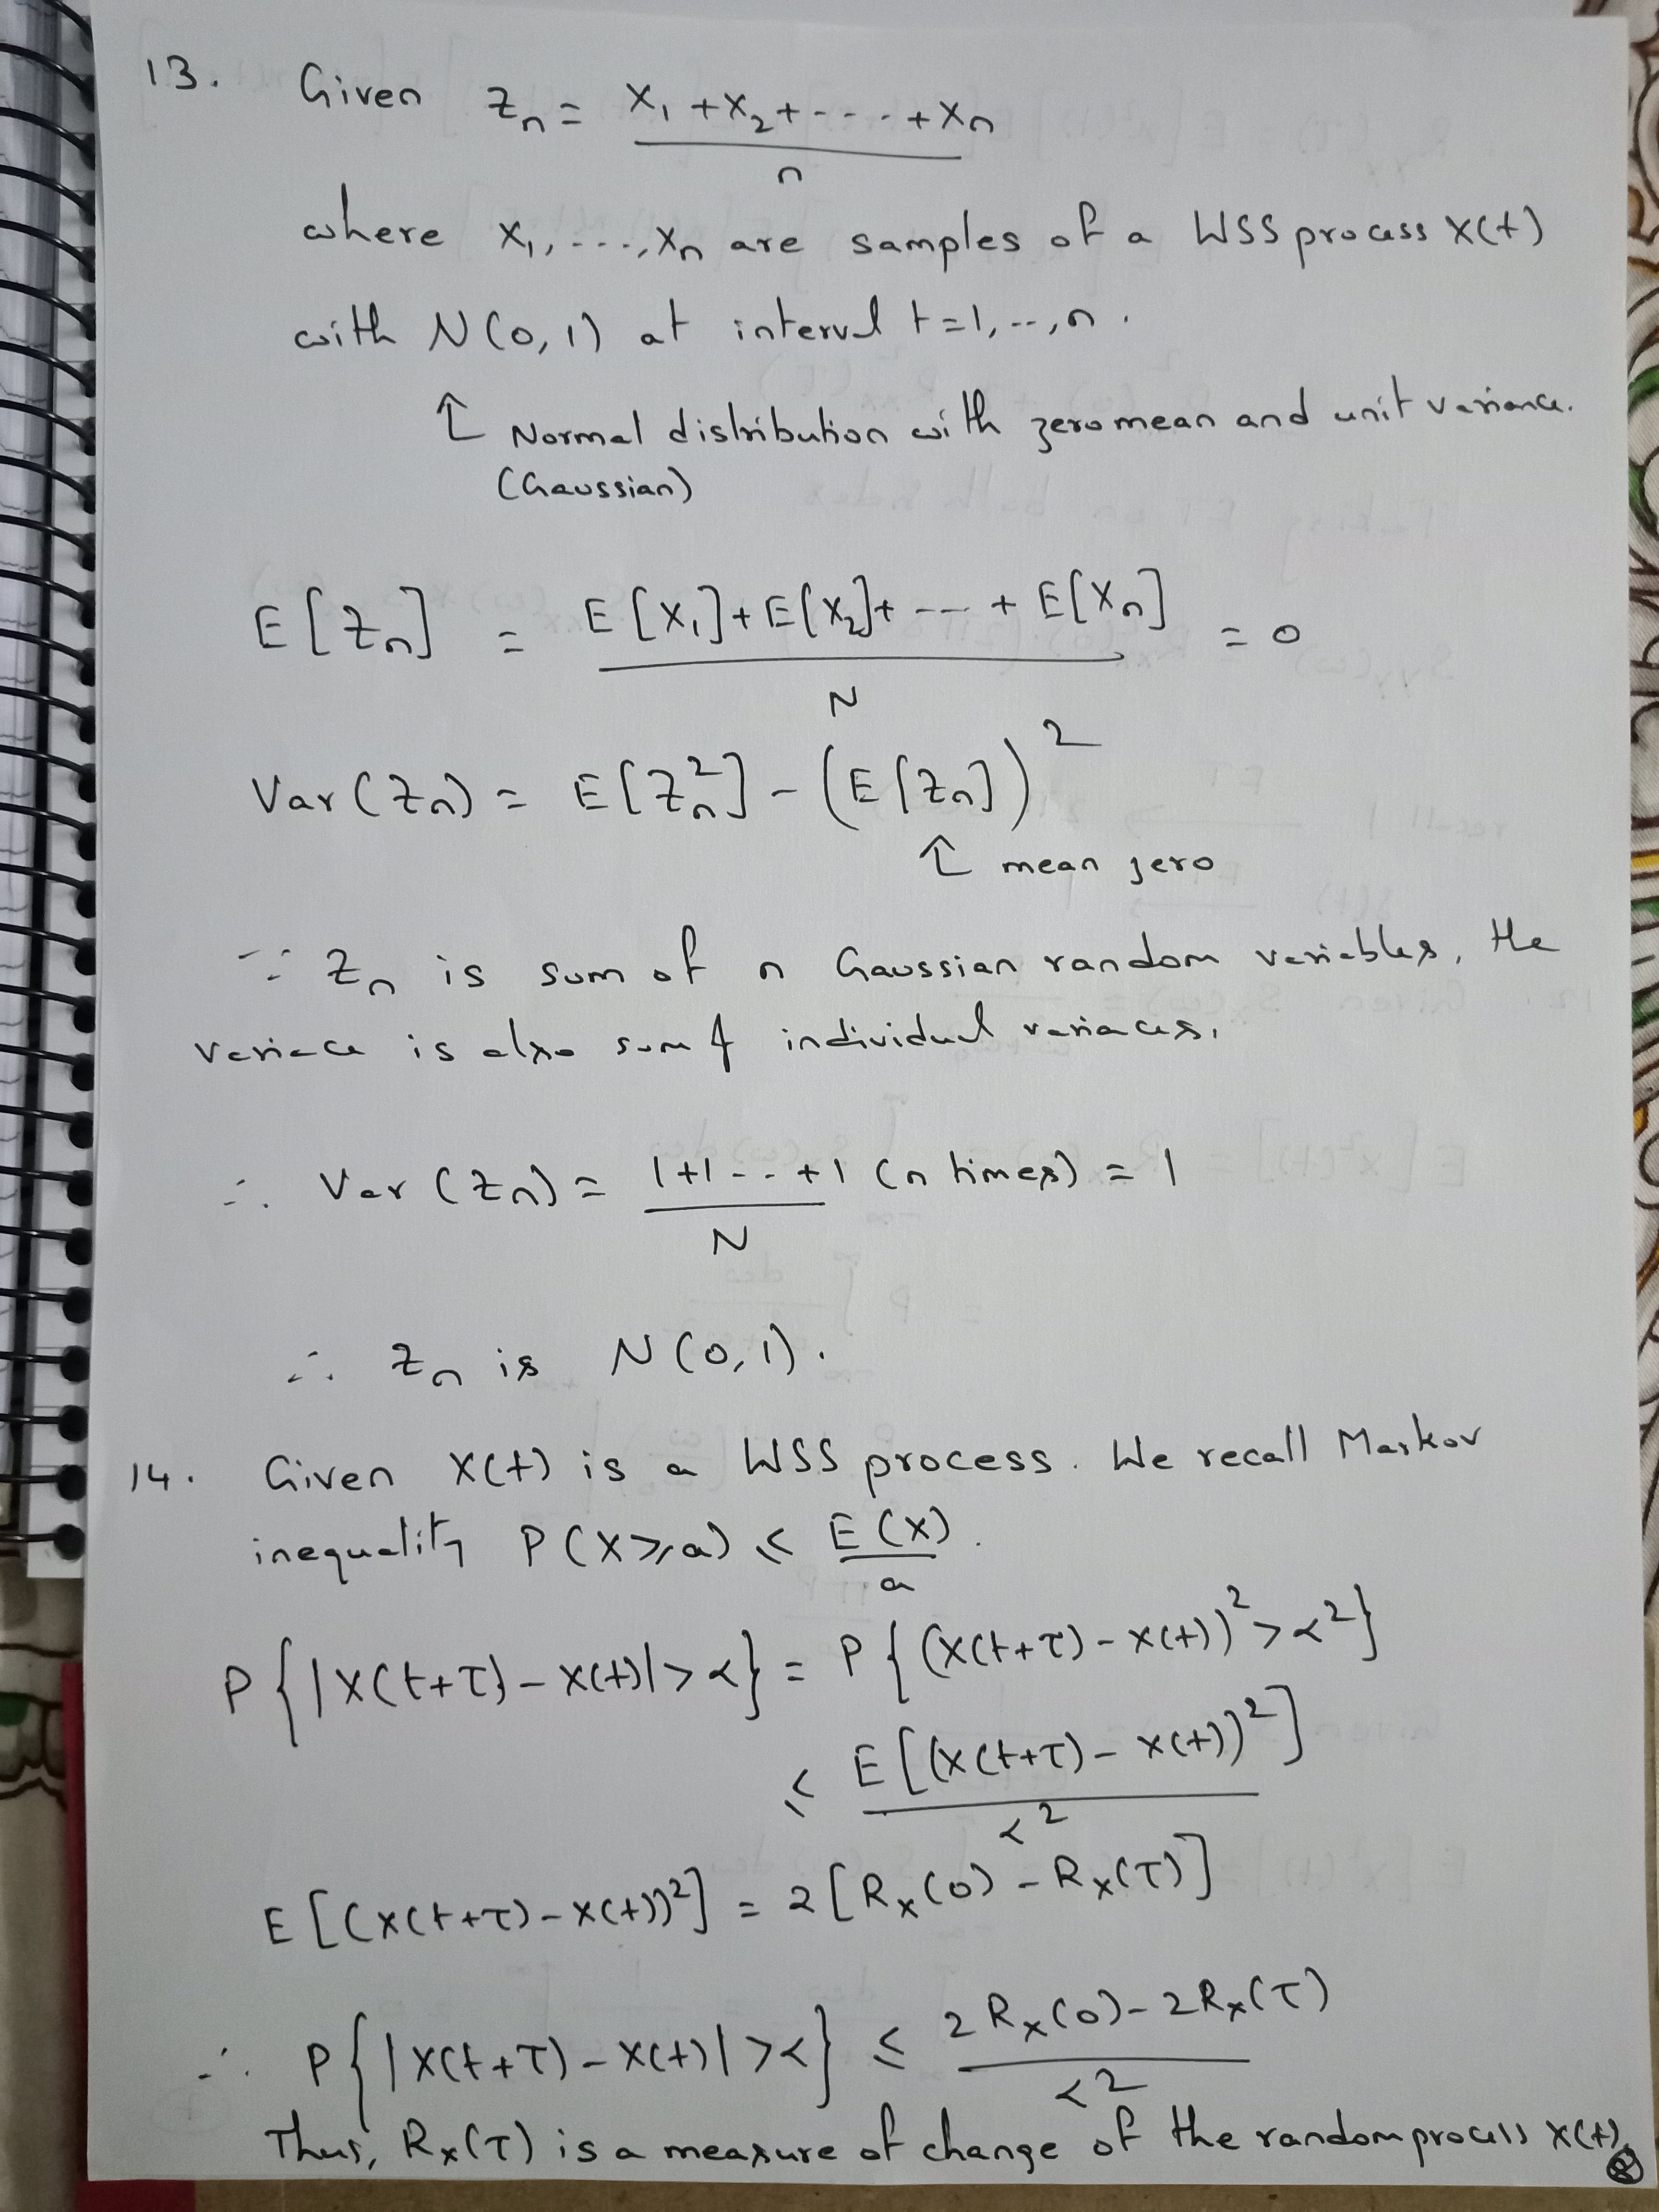 13. Given Zn = X1 + X2 + ---- + Xn / n
where X1, ---., Xn are samples of a WSS process X(t)
with N(0,1) at interval t=1, --, n.
↑ Normal distribution with zero mean and unit variance.
(Gaussian)
E[Zn] = E[X1] + E[X2] + --- + E[Xn] / N = 0
Var(Zn) = E[Zn²] - (E[Zn])²
↑ mean zero
∵ Zn is sum of n Gaussian random variables, the
variace is also sum of individual variaces.
∴ Var(Zn) = 1+1--.+1 (n times) / N = 1
∴ Zn is N(0,1).
14. Given X(t) is a WSS process. We recall Markov
inequality P(X ≥ a) ≤ E(X) / a.
P{|X(t+τ) - X(t)| > α} = P{(X(t+τ) - X(t))² > α²}
≤ E[(X(t+τ) - X(t))²] / α²
E[(X(t+τ) - X(t))²] = 2[Rx(0) - Rx(τ)]
∴ P{|X(t+τ) - X(t)| > α} ≤ 2Rx(0) - 2Rx(τ) / α²
Thus, Rx(τ) is a measure of change of the random process X(t).